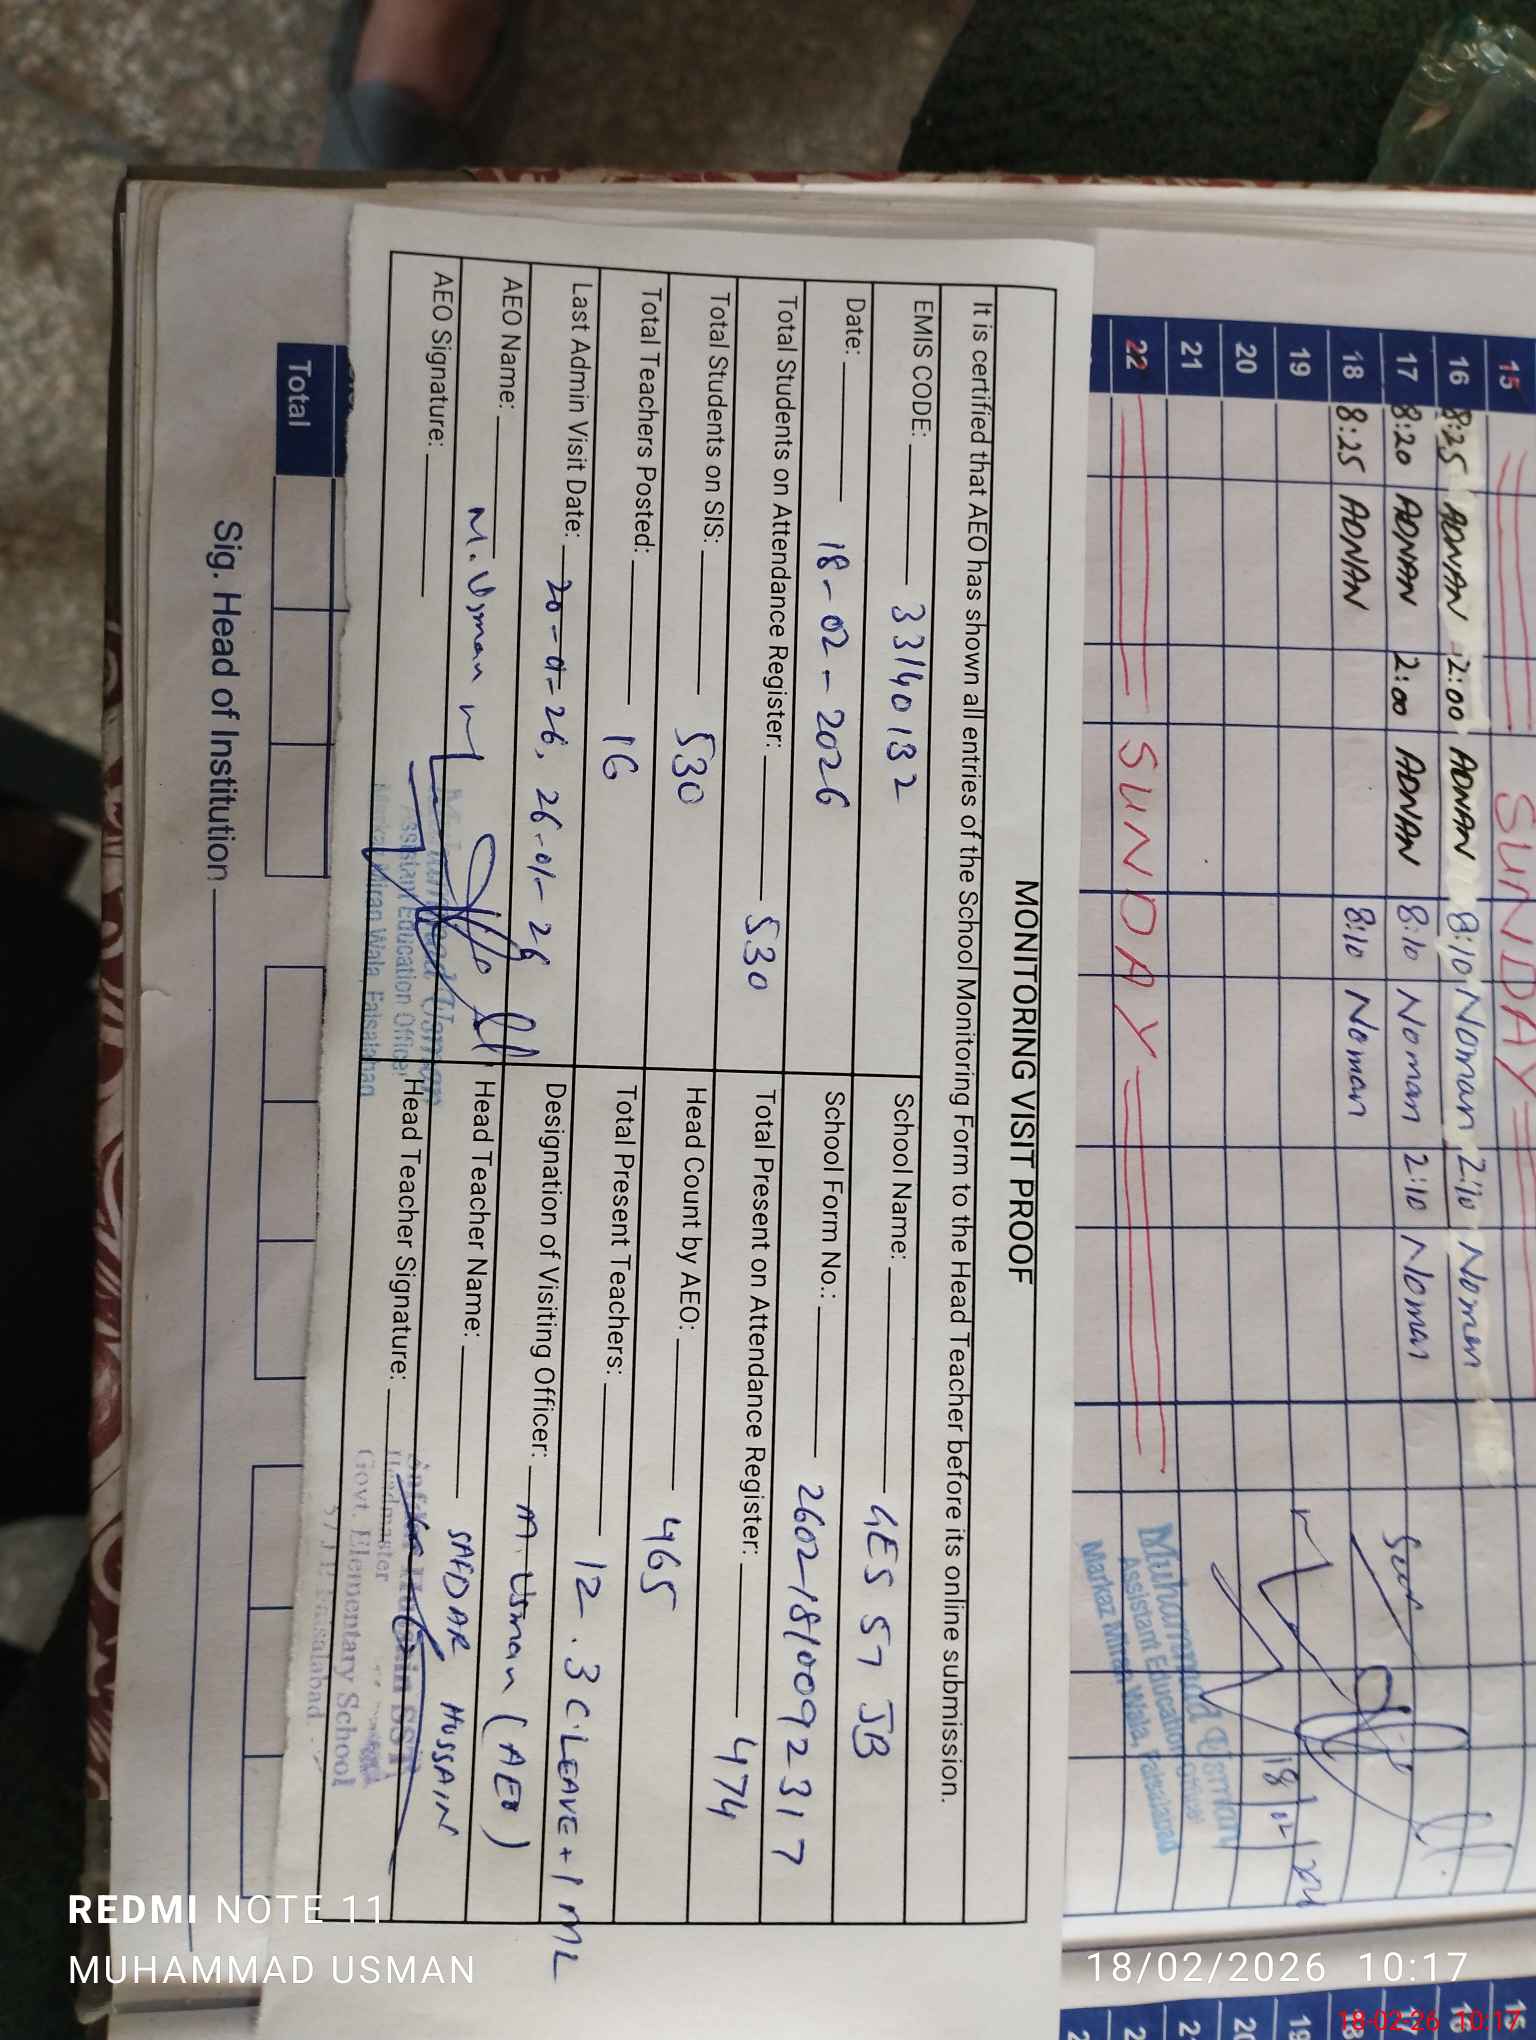 15 SUNDAY
16 8:25 ADNAN 2:00 ADNAN 8:10 Noman 2:10 Noman
17 8:20 ADNAN 2:00 ADNAN 8:10 Noman 2:10 Noman
18 8:25 ADNAN 8:10 Noman
19
20
21
22 SUNDAY
18/02
Muhammad Usman
Assistant Education Officer
Markaz Miran Wala, Faisalabad
MONITORING VISIT PROOF
It is certified that AEO has shown all entries of the School Monitoring Form to the Head Teacher before its online submission.
EMIS CODE: 33140132 School Name: GES 57 JB
Date: 18-02-2026 School Form No.: 26021810092317
Total Students on Attendance Register: 530 Total Present on Attendance Register: 474
Total Students on SIS: 530 Head Count by AEO: 465
Total Teachers Posted: 16 Total Present Teachers: 12 . 3 C.LEAVE + 1 ML
Last Admin Visit Date: 20-01-26, 26-01-26 Designation of Visiting Officer: M. Usman (AEO)
AEO Name: M. Usman Head Teacher Name: SAFDAR HUSSAIN
AEO Signature: Head Teacher Signature:
Muhammad Usman
Assistant Education Officer
Markaz Miran Wala, Faisalabad
Safdar Hussain SST
Headmaster
Govt. Elementary School
57 J.B Faisalabad.
Total
Sig. Head of Institution
REDMI NOTE 11
MUHAMMAD USMAN
18/02/2026 10:17
18-02-26 10:17
15
16
17
18
19
20